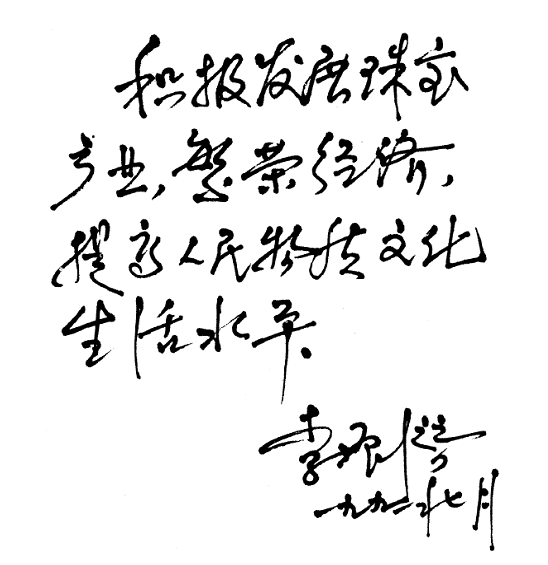 积极发展珠宝
产业,繁荣经济,
提高人民物质文化
生活水平。
李
一九九二年七月